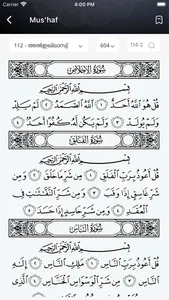 4:00 PM
Mus'haf
112 - അൽഇഖ്ലാസ്
604
114:2
سُورَةُ الإِخْلَاصِ
بِسْمِ اللَّهِ الرَّحْمَٰنِ الرَّحِيمِ
قُلْ هُوَ اللَّهُ أَحَدٌ ١ اللَّهُ الصَّمَدُ ٢ لَمْ يَلِدْ
وَلَمْ يُولَدْ ٣ وَلَمْ يَكُن لَّهُ كُفُوًا أَحَدٌ ٤
سُورَةُ الْفَلَقِ
بِسْمِ اللَّهِ الرَّحْمَٰنِ الرَّحِيمِ
قُلْ أَعُوذُ بِرَبِّ الْفَلَقِ ١ مِن شَرِّ مَا خَلَقَ ٢ وَمِن
شَرِّ غَاسِقٍ إِذَا وَقَبَ ٣ وَمِن شَرِّ النَّفَّاثَاتِ فِي
الْعُقَدِ ٤ وَمِن شَرِّ حَاسِدٍ إِذَا حَسَدَ ٥
سُورَةُ النَّاسِ
بِسْمِ اللَّهِ الرَّحْمَٰنِ الرَّحِيمِ
قُلْ أَعُوذُ بِرَبِّ النَّاسِ ١ مَلِكِ النَّاسِ ٢ إِلَٰهِ
النَّاسِ ٣ مِن شَرِّ الْوَسْوَاسِ الْخَنَّاسِ ٤ الَّذِي